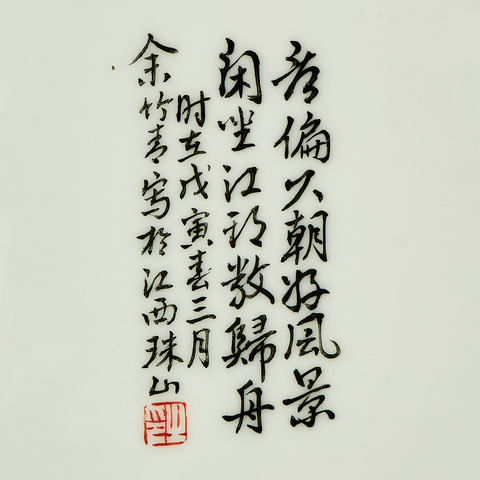 看偏六朝好風景
闲坐江邨数歸舟
时在戊寅春三月
余竹青寫於江西珠山